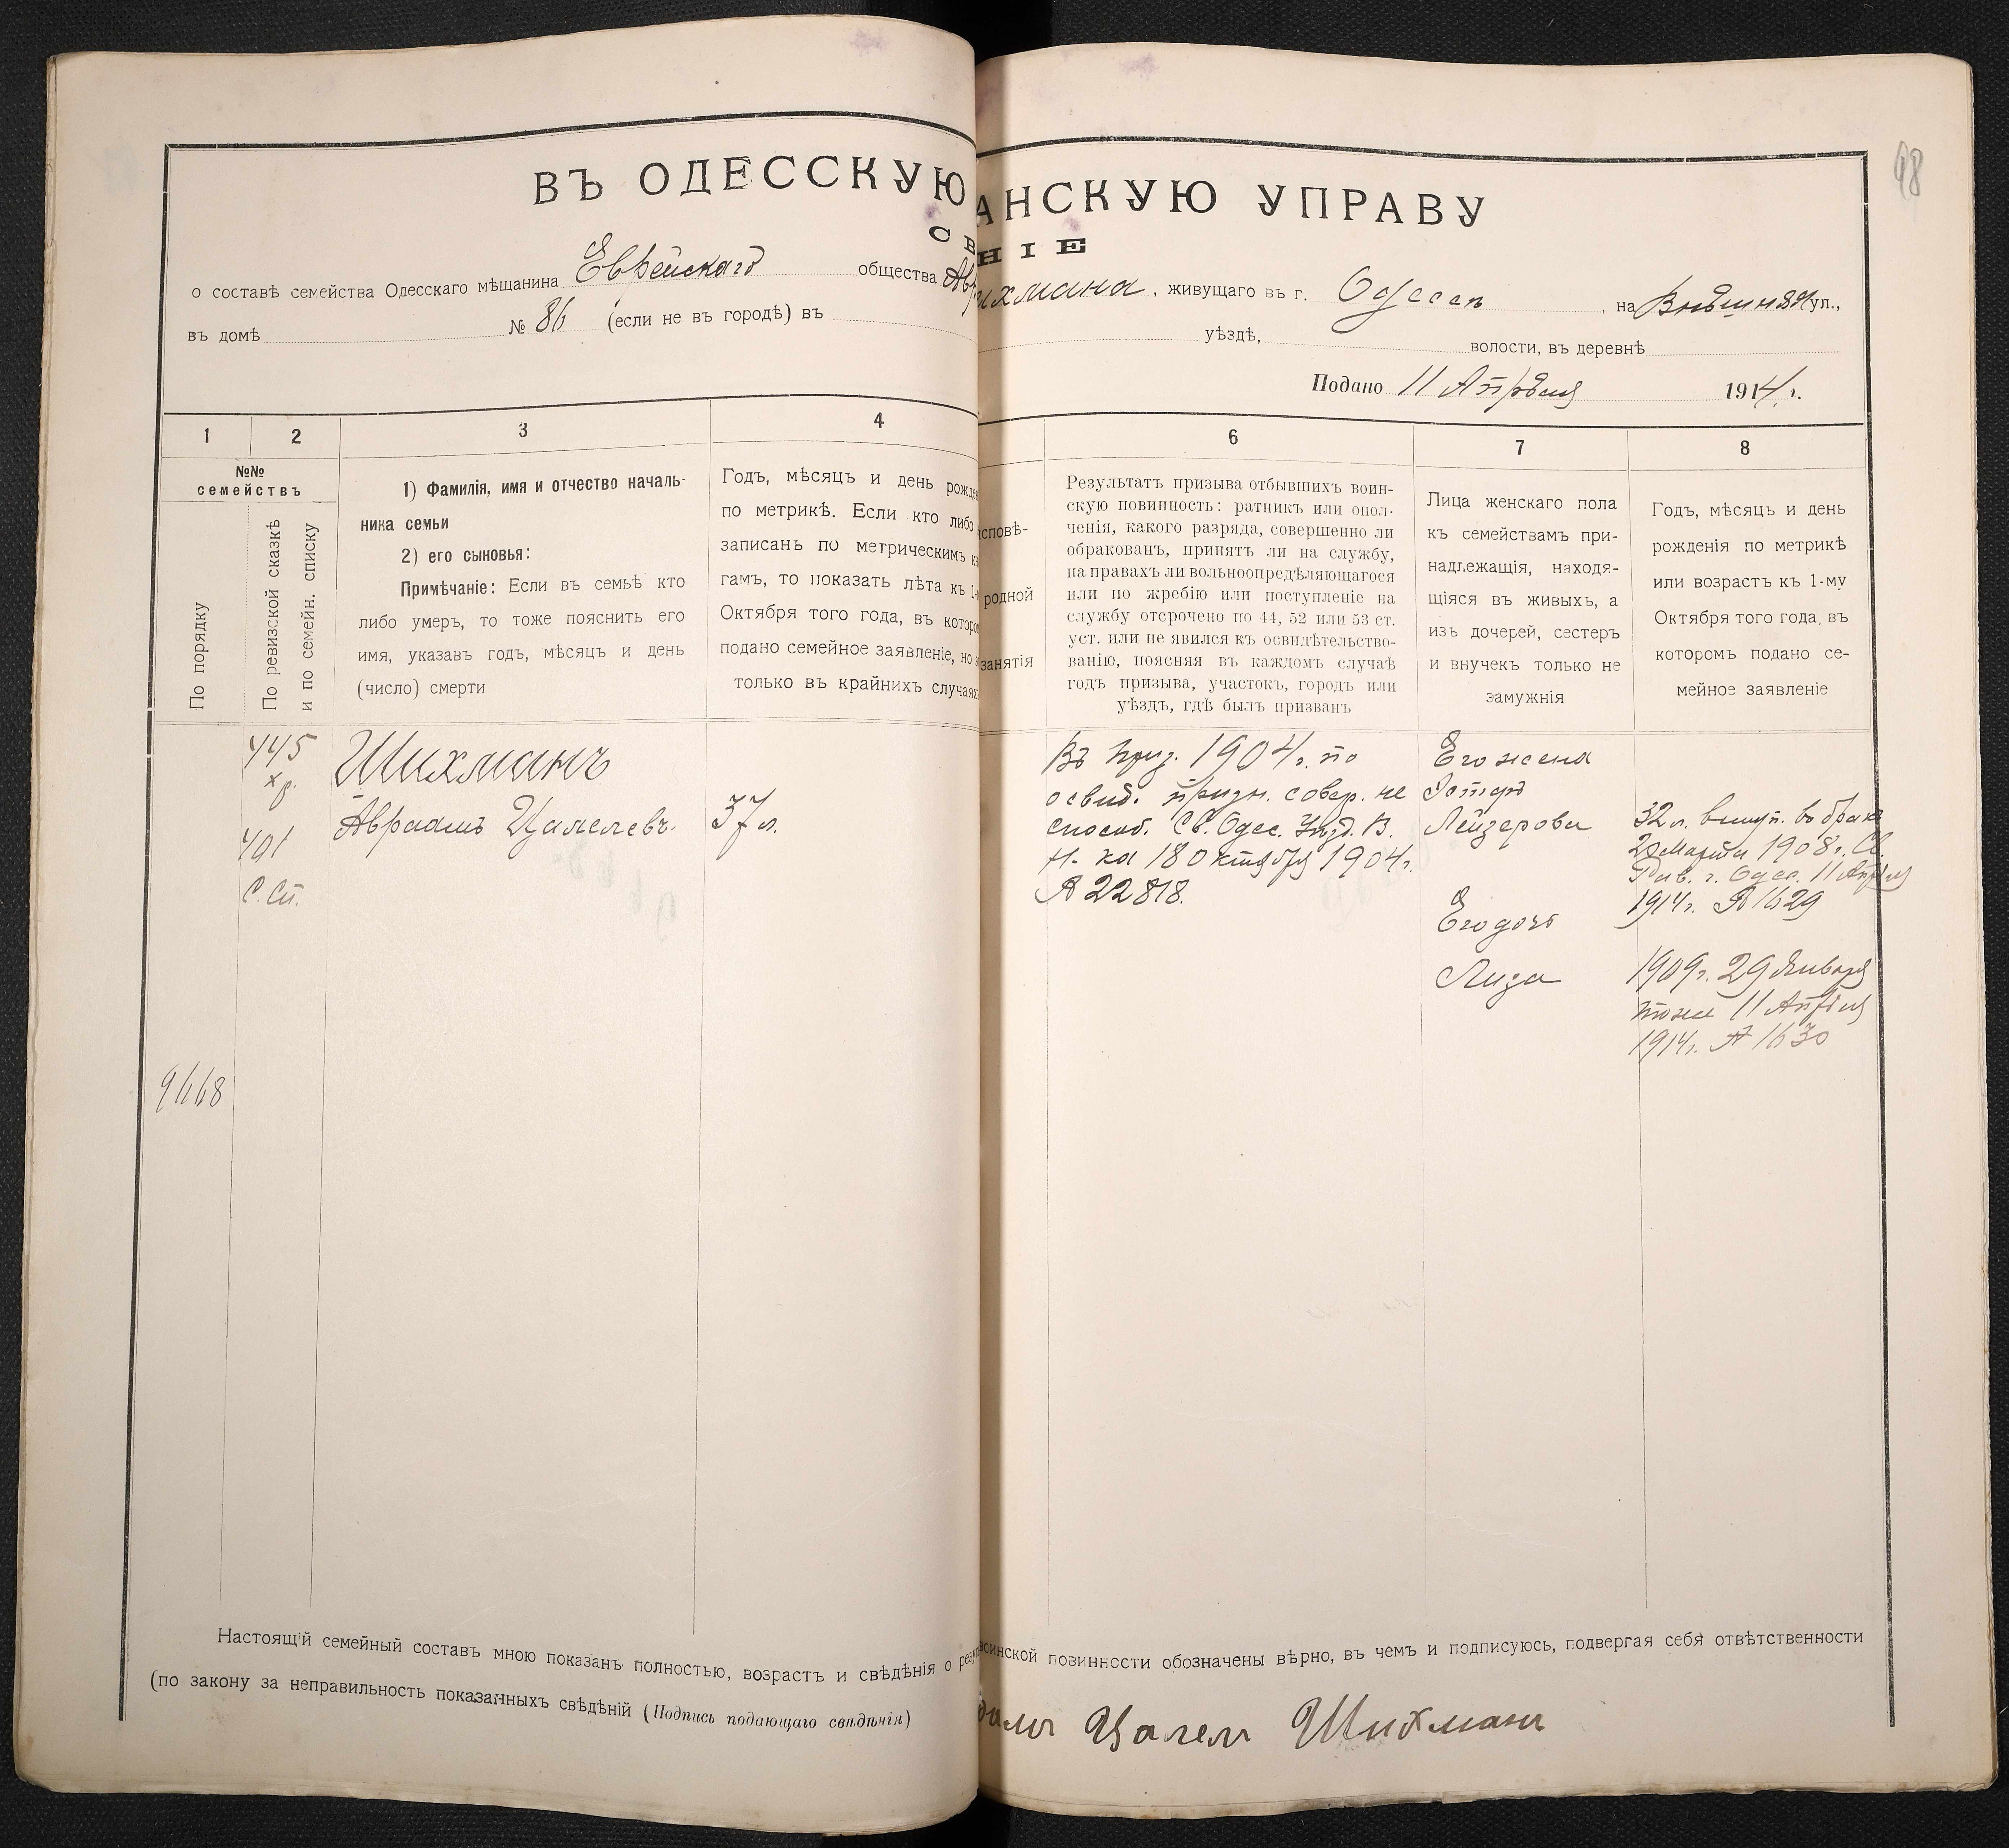 48
ВЪ ОДЕССКУЮ АНСКУЮ УПРАВУ
СВ НІЕ
о составѣ семейства Одесскаго мѣщанина Еврейскаго общества Ав ихмана, живущаго въ г. Одессѣ, на Внѣшняя ул.,
въ домѣ № 86 (если не въ городѣ) въ уѣздѣ, волости, въ деревнѣ
Подано 11 Апрѣля 1914 г.
1 2 3 4 6 7 8
№№
семействъ
По порядку
По ревизской сказкѣ
и по семейн. списку
1) Фамилія, имя и отчество началь-
ника семьи
2) его сыновья:
Примѣчаніе: Если въ семьѣ кто
либо умеръ, то тоже пояснить его
имя, указавъ годъ, мѣсяцъ и день
(число) смерти
Годъ, мѣсяцъ и день рожде
по метрикѣ. Если кто либо
записанъ по метрическимъ кн
гамъ, то показать лѣта къ 1-
Октября того года, въ которо
подано семейное заявленіе, но
только въ крайнихъ случаях
сповѣ-
родной
занятія
Результатъ призыва отбывшихъ воин-
скую повинность: ратникъ или опол-
ченія, какого разряда, совершенно ли
обракованъ, принятъ ли на службу,
на правахъ ли вольноопредѣляющагося
или по жребію или поступленіе на
службу отсрочено по 44, 52 или 53 ст.
уст. или не явился къ освидѣтельство-
ванію, поясняя въ каждомъ случаѣ
годъ призыва, участокъ, городъ или
уѣздъ, гдѣ былъ призванъ
Лица женскаго пола
къ семействамъ при-
надлежащія, находя-
щіяся въ живыхъ, а
изъ дочерей, сестеръ
и внучекъ только не
замужнія
Годъ, мѣсяцъ и день
рожденія по метрикѣ
или возрастъ къ 1-му
Октября того года, въ
которомъ подано се-
мейное заявленіе
445
хр.
491
С. Сп.
9668
Шихманъ
Авраамъ Цалелевъ.
37 л.
Въ приз. 1904 г. по
освид. призн. совер. не
способ. Св. Одес. Уѣзд. В.
П. на 18 Октября 1904 г.
№ 22818.
Его жена
Эстеръ
Лейзерова
32 л. вступ. во бракъ
20 Марта 1908 г. Св.
Рав. г. Одес. 11 Апрѣля
1914 г. № 1629
Его дочь
Лиза
1909 г. 29 Января
тоже 11 Апрѣля
1914 г. № 1630
Настоящій семейный составъ мною показанъ полностью, возрастъ и свѣдѣнія о рез воинской повинности обозначены вѣрно, въ чемъ и подписуюсь, подвергая себя отвѣтственности
(по закону за неправильность показанныхъ свѣдѣній (Подпись подающаго свѣдѣнія)
Цалел Шихман